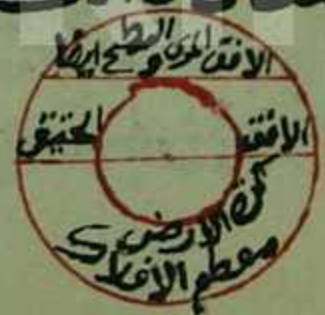 الافق المرئي والسطح ايضا
الافق الحقيقي
كرة الارض
معظم الافلاك